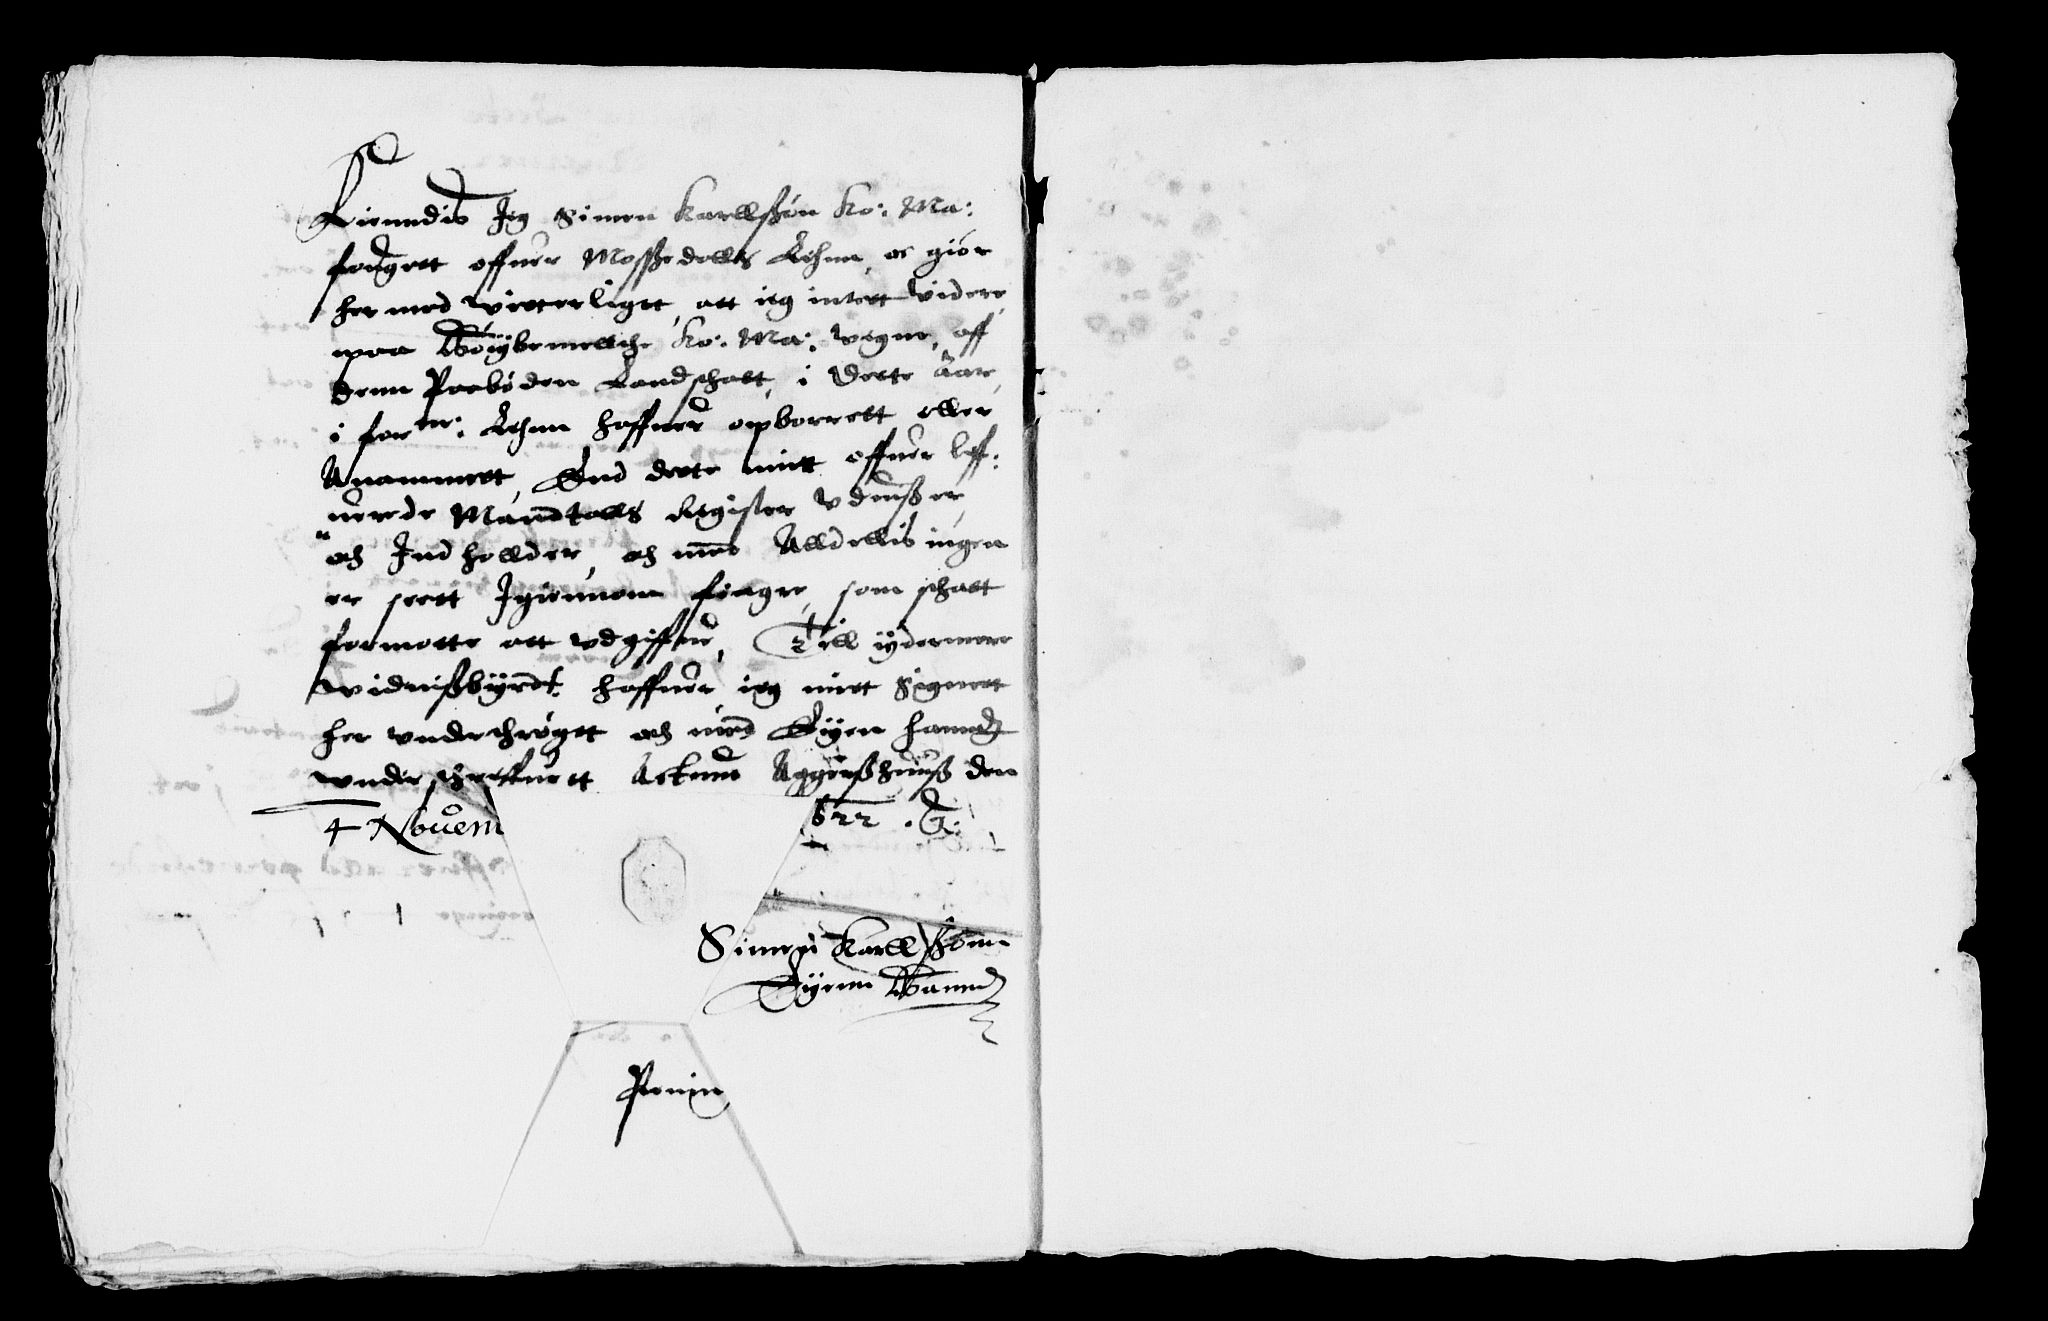 Kienndis Jeg Simen Karellßøn Ko: Ma:
fougett offuer Moßedalls Lehnn, oc giør
her med vitterligtt, att ieg intett videre,
paa Høiybemeltte Ko: Ma: vegne, aff
denn Paabøden Landschatt, i dette Aar,
i for.ne: Lehnn haffuer opborrett eller
Anammett, End dette mitt offuer leff:
uerede Mandtalls Register vduißer,
och Indholder, och med Alldellis ingen
er seett Igiennom fingre, som schatt
formotte att vdgiffue, Till ydermere
vidnißbyrdt haffuer ieg mitt Signett
her vnderthrøgtt och med Eygen Haandt
vnderschreffuett Actum Aggerßhuuß den
4 Nouem
Simenn Karellßønn
Eygenn Haannd